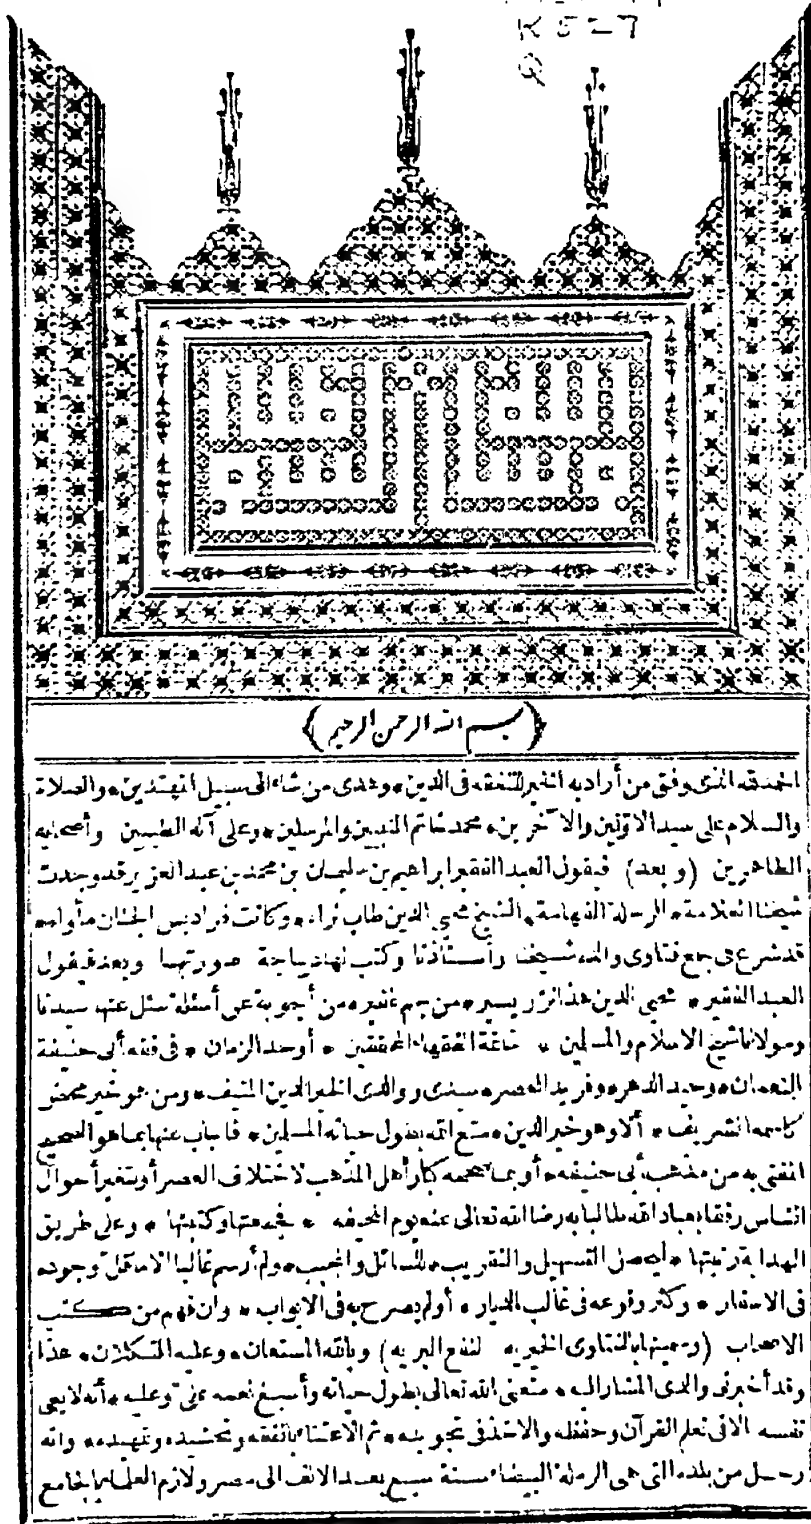 K527
﴿بسم الله الرحمن الرحيم﴾
الحمد لله الذى وفق من أراد به الخير للتفقه فى الدين * وهدى من شاء الى سبيل المهتدين * والصلاة
والسلام على سيد الاولين والآخرين * محمد خاتم النبيين والمرسلين * وعلى آله الطيبين وأصحابه
الطاهرين (وبعد) فيقول العبد الفقير ابراهيم بن سليمان بن محمد بن عبد العزيز قد وجدت
شيخنا العلامة * الرحلة الفهامة * الشيخ محيي الدين طاب ثراه * وكانت فراديس الجنان مأواه *
قد شرع فى جمع فتاوى والده شيخنا وأستاذنا وكتب لها ديباجة صورتها وبعد فيقول
العبد الفقير * محيي الدين هذا نزر يسير * من جم غفير * من أجوبة عن أسئلة سئل عنها سيدنا
ومولانا شيخ الاسلام والمسلمين * خاتمة الفقهاء المحققين * أوحد الزمان * فى فقه أبى حنيفة
النعمان * وحيد الدهر * وفريد العصر * سيدى ووالدى الخير الدين المنيف * ومن هو خير محض
كاسمه الشريف * ألا وهو خير الدين * متع الله بطول حياته المسلمين * فأجاب عنها بما هو الصحيح
المفتى به من مذهب أبى حنيفه * أو بما صححه كبار أهل المذهب لاختلاف العصر أو تغير أحوال
الناس رفقا بعباد الله طالبا به رضا الله تعالى عنه يوم الخيفه * فجمعتها وكتبتها * وعلى طريق
الهداية رتبتها * ليحصل التسهيل والتقريب * للسائل والمجيب * ولم أرسم غالبا الا ما قل وجوده
فى الاسفار * وكثر وقوعه فى غالب الديار * أو لم يصرح به فى الابواب * وان فهم من كتب
الاصحاب (وسميتها بالفتاوى الخيريه لنفع البريه) وبالله المستعان * وعليه التكلان * هذا
وقد أخبرنى والدى المشار اليه * متعنى الله تعالى بطول حياته وأسبغ نعمه عنى وعليه * أنه لا يعى
نفسه الا فى تعلم القرآن وحفظه والاخذ فى تجويده * ثم الاعتناء بالفقه وتحشيده وتمهيده * وانه
رحل من بلده التى هى الرملة البيضاء سنة سبع بعد الالف الى مصر ولازم العلماء بالجامع